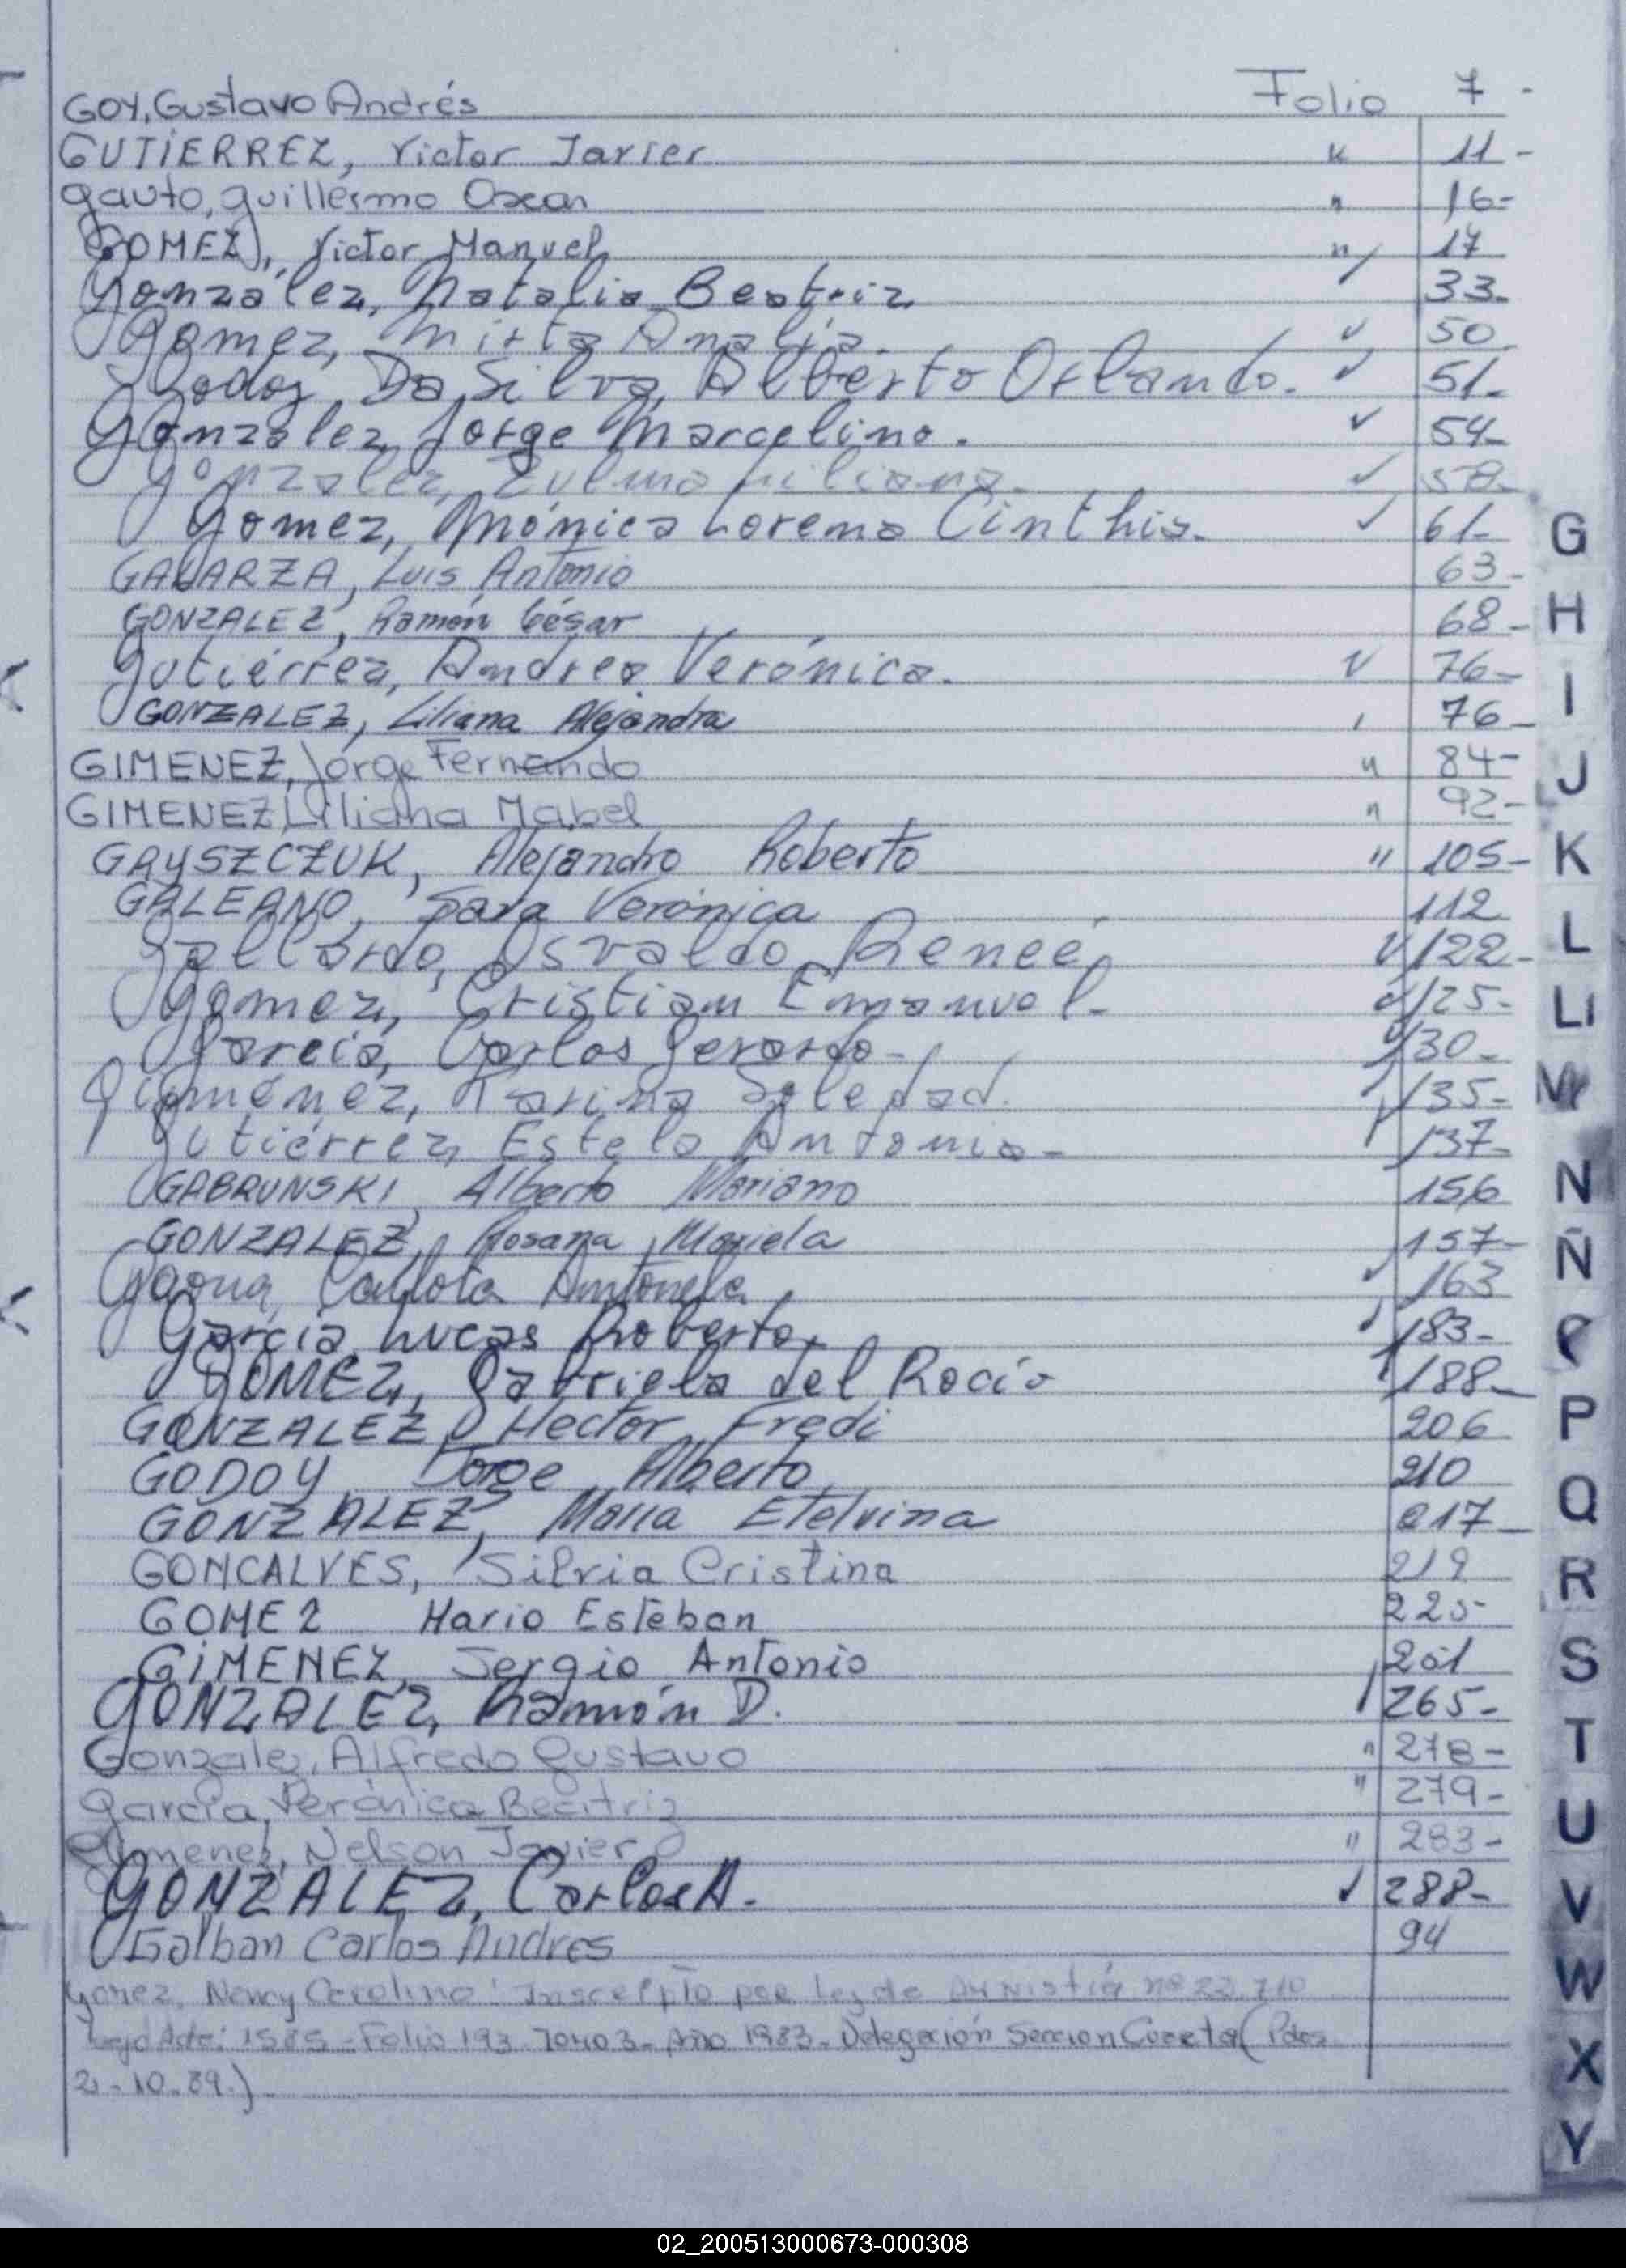 GOY, Gustavo Andrés Folio 7-
GUTIERREZ, Victor Javier " 11-
Gauto, Guillermo Oscar " 16-
GOMEZ, Victor Manuel " 17
González, Natalia Beatriz 33-
Gomez, Mirta Analía. 50
Godoy Da Silva, Alberto Orlando. 51-
González, Jorge Marcelino. 54-
González, Zulma Liliana. 58-
Gomez, Mónica Lorena Cinthia. 61-
GALARZA, Luis Antonio 63-
GONZALEZ, Ramón César 68-
Gutiérrez, Andrea Verónica. 76-
GONZALEZ, Liliana Alejandra 76-
GIMENEZ, Jorge Fernando " 84-
GIMENEZ, Liliana Mabel " 92-
GRYSZCZUK, Alejandro Roberto " 105-
GALEANO, Sara Verónica 112
Gallardo, Osvaldo Reneé, 122-
Gomez, Cristian Emanuel- 125-
García, Carlos Gerardo- 130-
Giménez, Karina Soledad. 135-
Gutiérrez, Estela Antonia- 137-
GABRUNSKI, Alberto Mariano 156
GONZALEZ, Rosana Mariela 157-
Gaona, Carlota Antonela 163
García, Lucas Roberto, 183-
GOMEZ, Gabriela del Rocío 188-
GONZALEZ, Hector Fredi 206
GODOY Jorge Alberto 210
GONZALEZ, María Etelvina 217-
GONCALVES, Silvia Cristina 219
GOMEZ Mario Esteban 225
GIMENEZ, Sergio Antonio
GONZALEZ, Ramón D. 265-
Gonzalez, Alfredo Gustavo " 278-
García, Verónica Beatriz " 279-
Gimenez, Nelson Javier " 283-
GONZALEZ, Carlos A. 288-
Galban Carlos Andres 94
Gomez, Nancy Carolina: Inscripto por Ley de Amnistía nº 22.710
Acta: 1585 - Folio 193 - Tomo 3 - Año 1983 - Delegación Seccion Cuarta (Pdas
2-10-89.)
G
H
I
J
K
L
Ll
M
N
Ñ
P
Q
R
S
T
U
V
W
X
Y
02_200513000673-000308